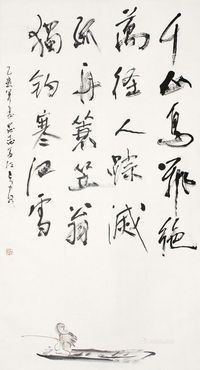 千山鳥飛絕
萬径人踪滅
孤舟蓑笠翁
獨釣寒江雪
乙亥年